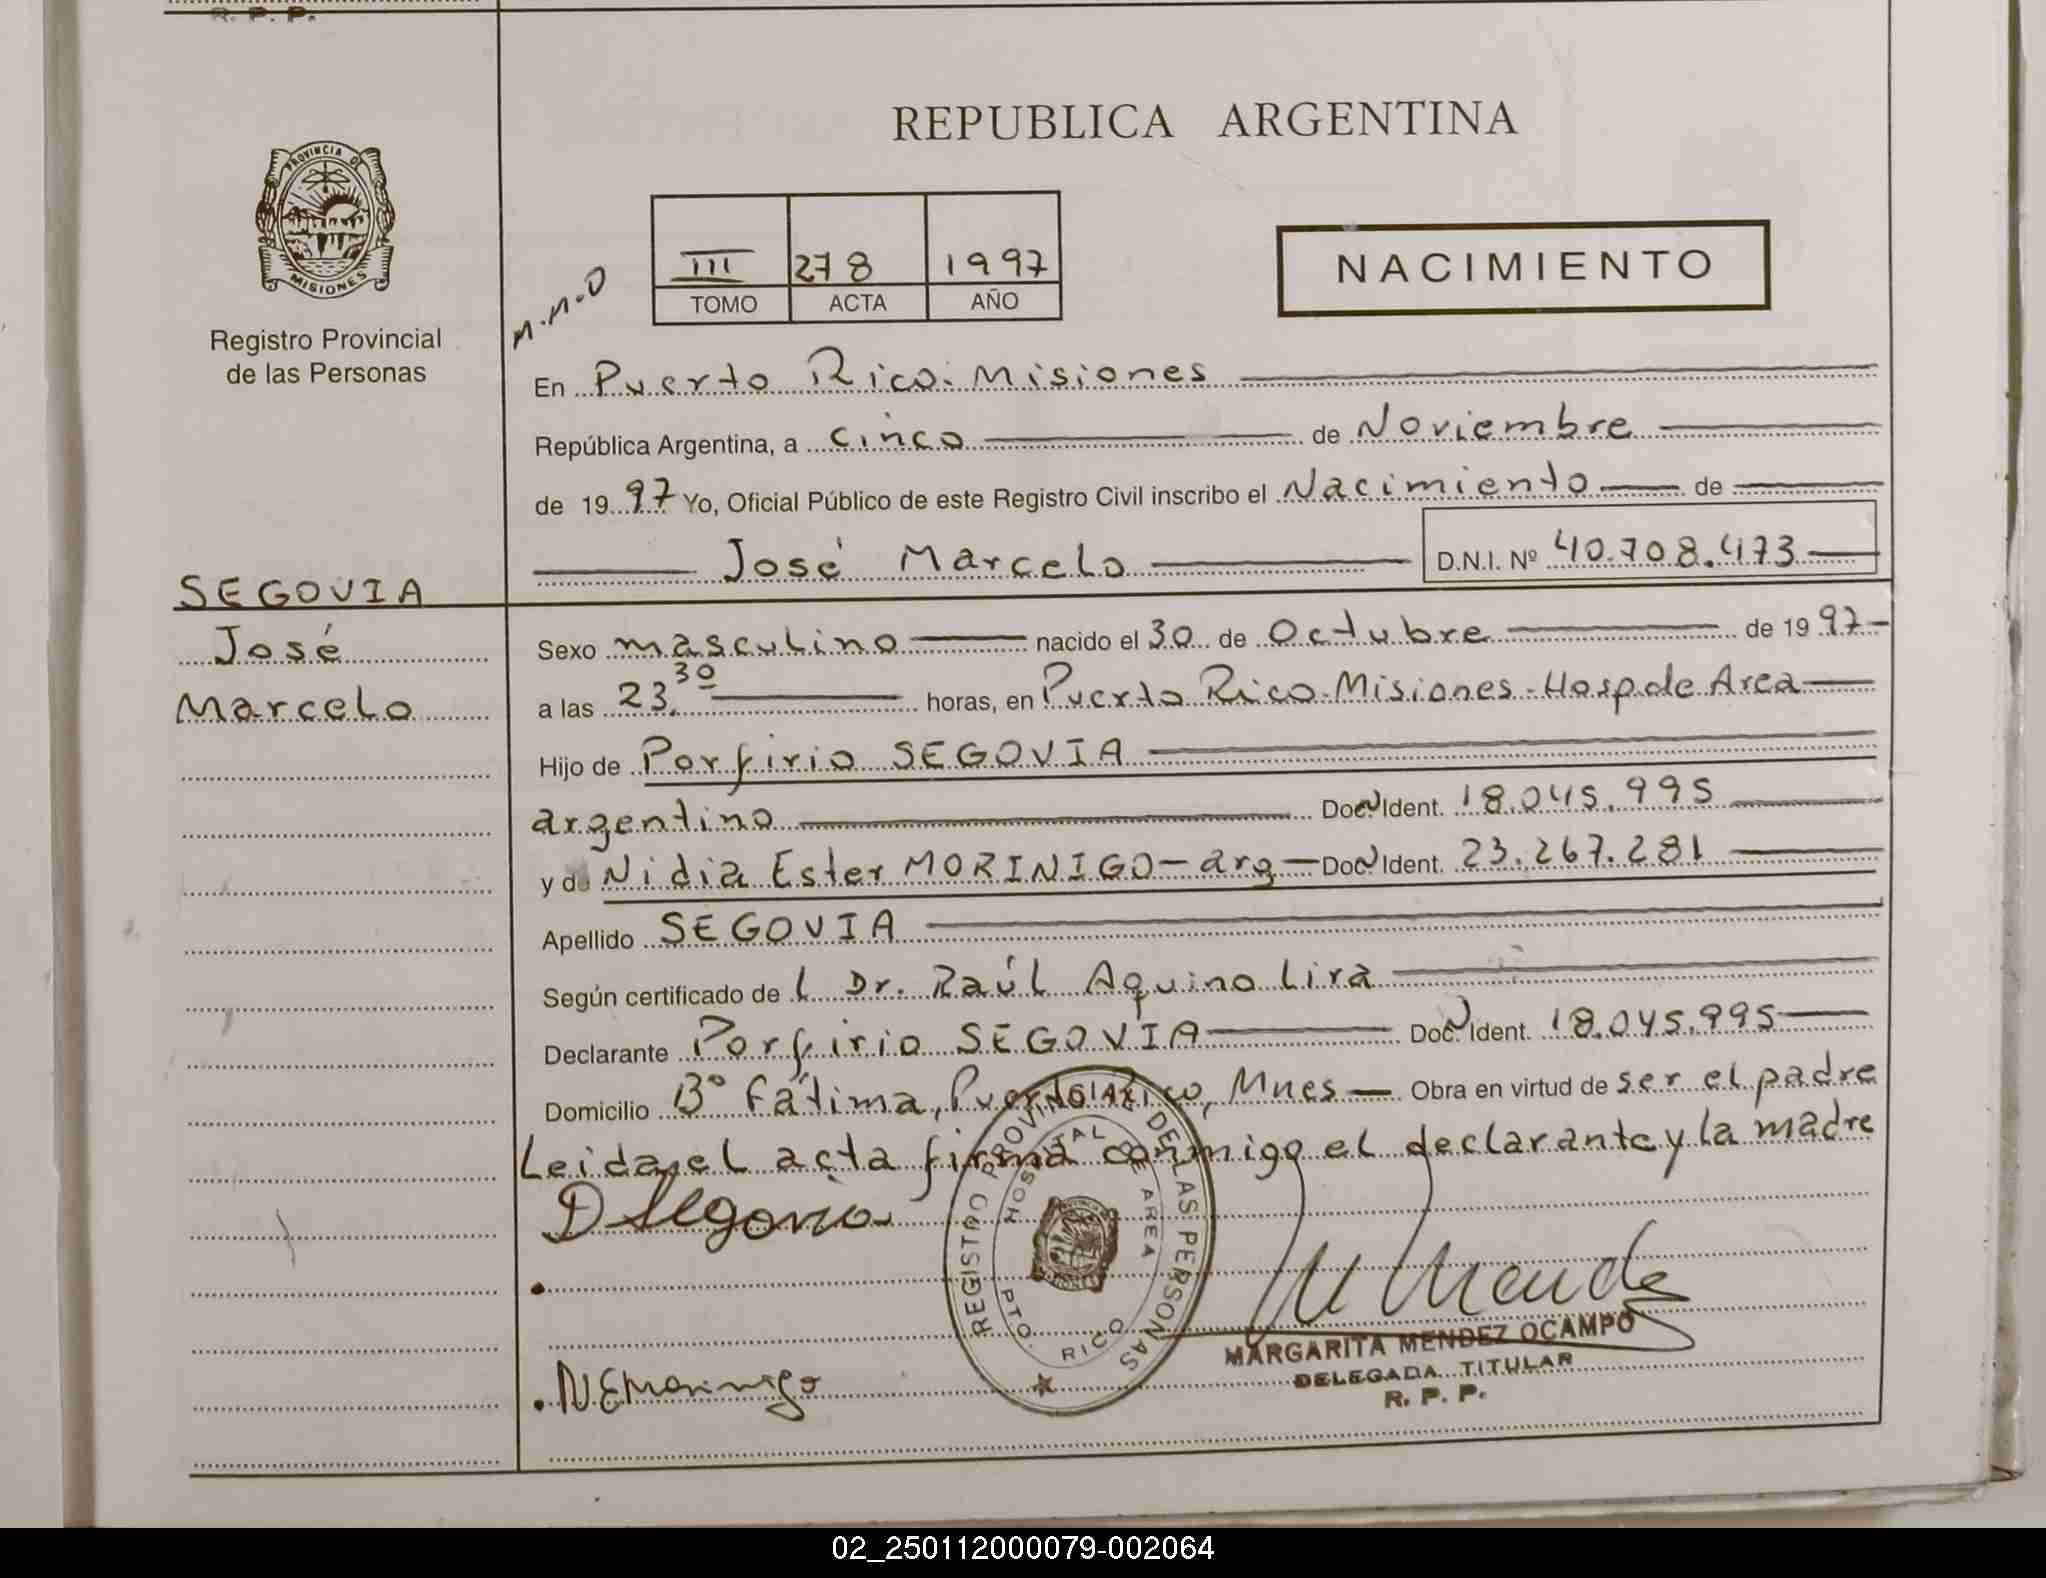 R. P. P.
REPUBLICA ARGENTINA
PROVINCIA DE
MISIONES
Registro Provincial
de las Personas
M.M.O
III 278 1997
TOMO ACTA AÑO
NACIMIENTO
En Puerto Rico. Misiones
República Argentina, a cinco de Noviembre
de 1997 Yo, Oficial Público de este Registro Civil inscribo el Nacimiento de
José Marcelo D.N.I. Nº 40.708.473
SEGOVIA
José
Marcelo
Sexo masculino nacido el 30 de Octubre de 1997
a las 23.30 horas, en Puerto Rico-Misiones-Hosp.de Area
Hijo de Porfirio SEGOVIA
argentino Doc. Ident. 18.045.995
y de Nidia Ester MORINIGO-arg- Doc. Ident. 23.267.281
Apellido SEGOVIA
Según certificado de l Dr. Raúl Aquino Lira
Declarante Porfirio SEGOVIA Doc. Ident. 18.045.995
Domicilio Bº Fátima, Puerto Rico, Mnes Obra en virtud de ser el padre
Leida el acta firma conmigo el declarante y la madre
Segovia
REGISTRO PROVINCIAL DE LAS PERSONAS
HOSPITAL DE AREA
PTO. RICO
M Mendez
MARGARITA MENDEZ OCAMPO
DELEGADA TITULAR
R. P. P.
N.E Morinigo
02_250112000079-002064